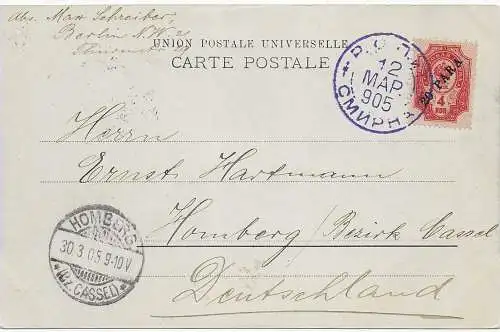 Abs. Max Schreiber,
Berlin N.W. 21
UNION POSTALE UNIVERSELLE
CARTE POSTALE
12
МАР
905
СМИРНА
20 PARA
4
КОП
Herrn
Ernst Hartmann
Homberg / Bezirk Cassel
Deutschland
HOMBERG
30 3 05 9-10 V
(BZ. CASSEL)